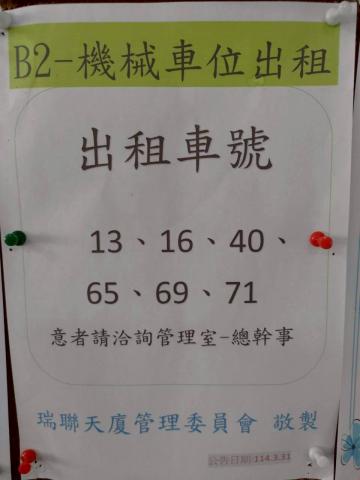 B2-機械車位出租
出租車號
13、16、40、
65、69、71
意者請洽詢管理室-總幹事
瑞聯天廈管理委員會 敬製
公告日期:114.3.31